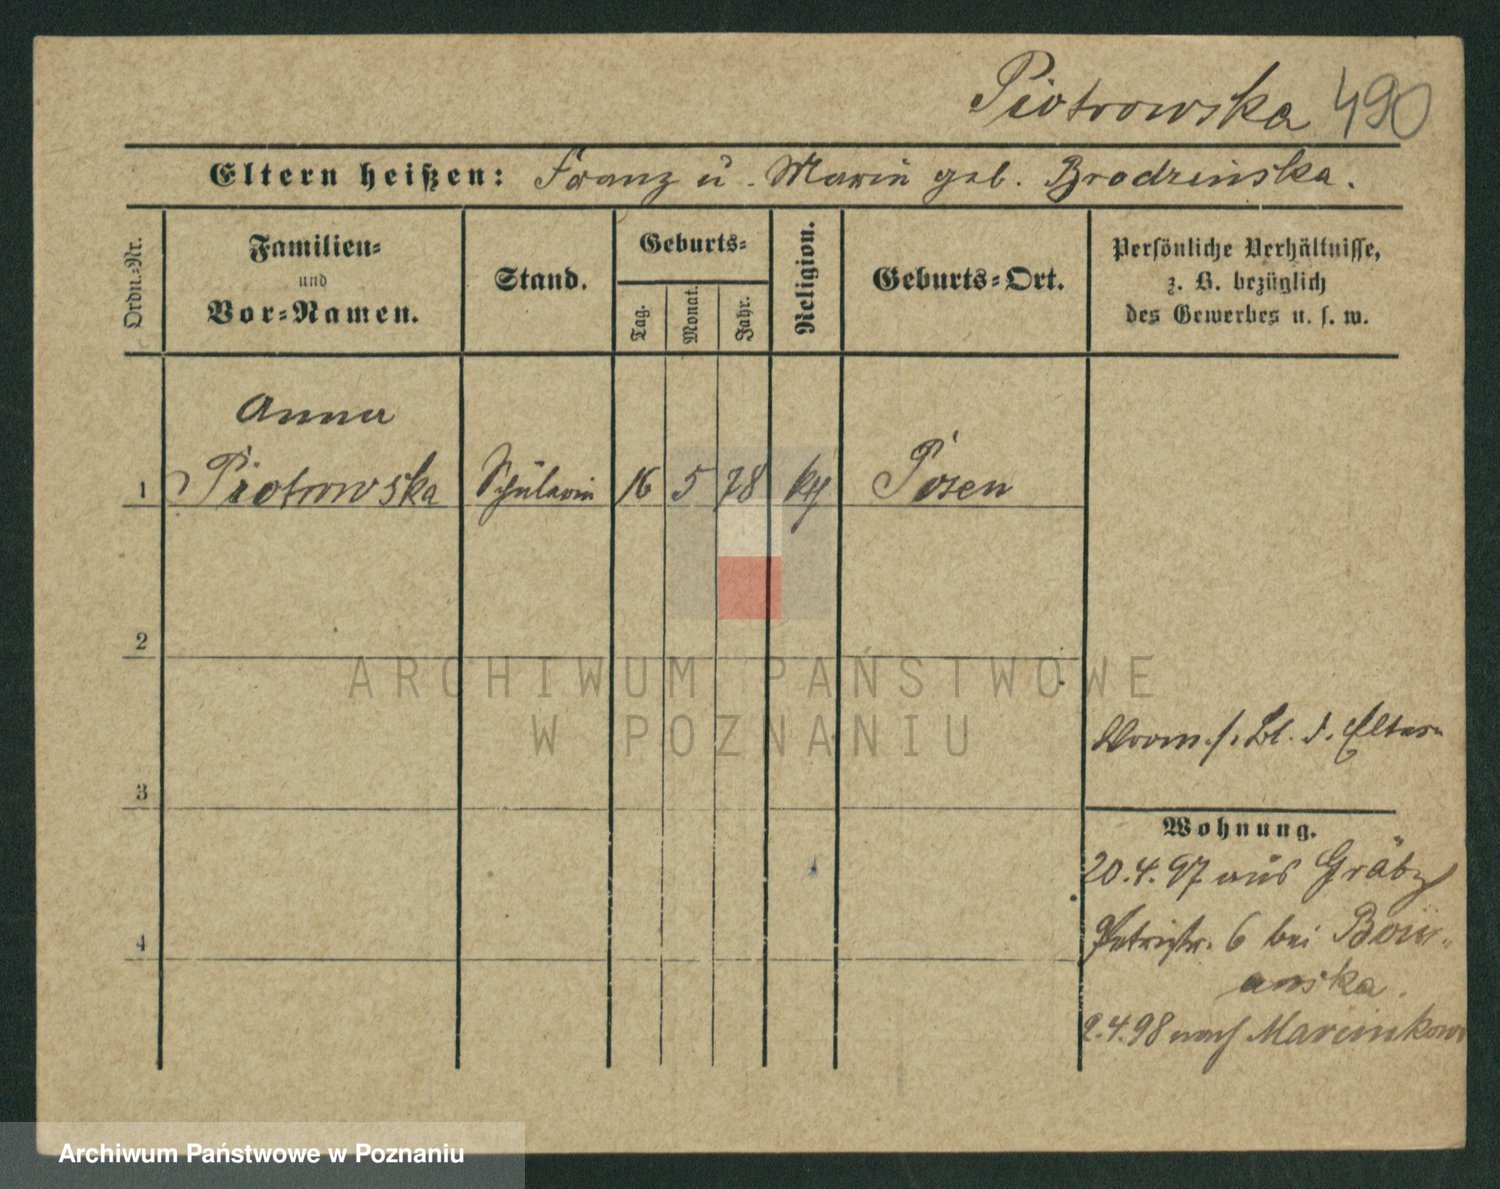 Piotrowska 490
Eltern heißen: Franz u. Marie geb. Brodzinska.
Ordn.-Nr.
Familien-
und
Vor-Namen.
Stand.
Geburts-
Tag.
Monat.
Jahr.
Religion.
Geburts-Ort.
Persönliche Verhältnisse,
z. B. bezüglich
des Gewerbes u. s. w.
Anna
1 Piotrowska Schülerin 16 5 78 kth Posen
2
ARCHIWUM PAŃSTWOWE
W POZNANIU
Brom. s. Bl. d. Eltern
3
Wohnung.
20.4.97 aus Grätz
Petristr. 6 bei
4
anska.
2.4.98 nach Marcinkowo
Archiwum Państwowe w Poznaniu